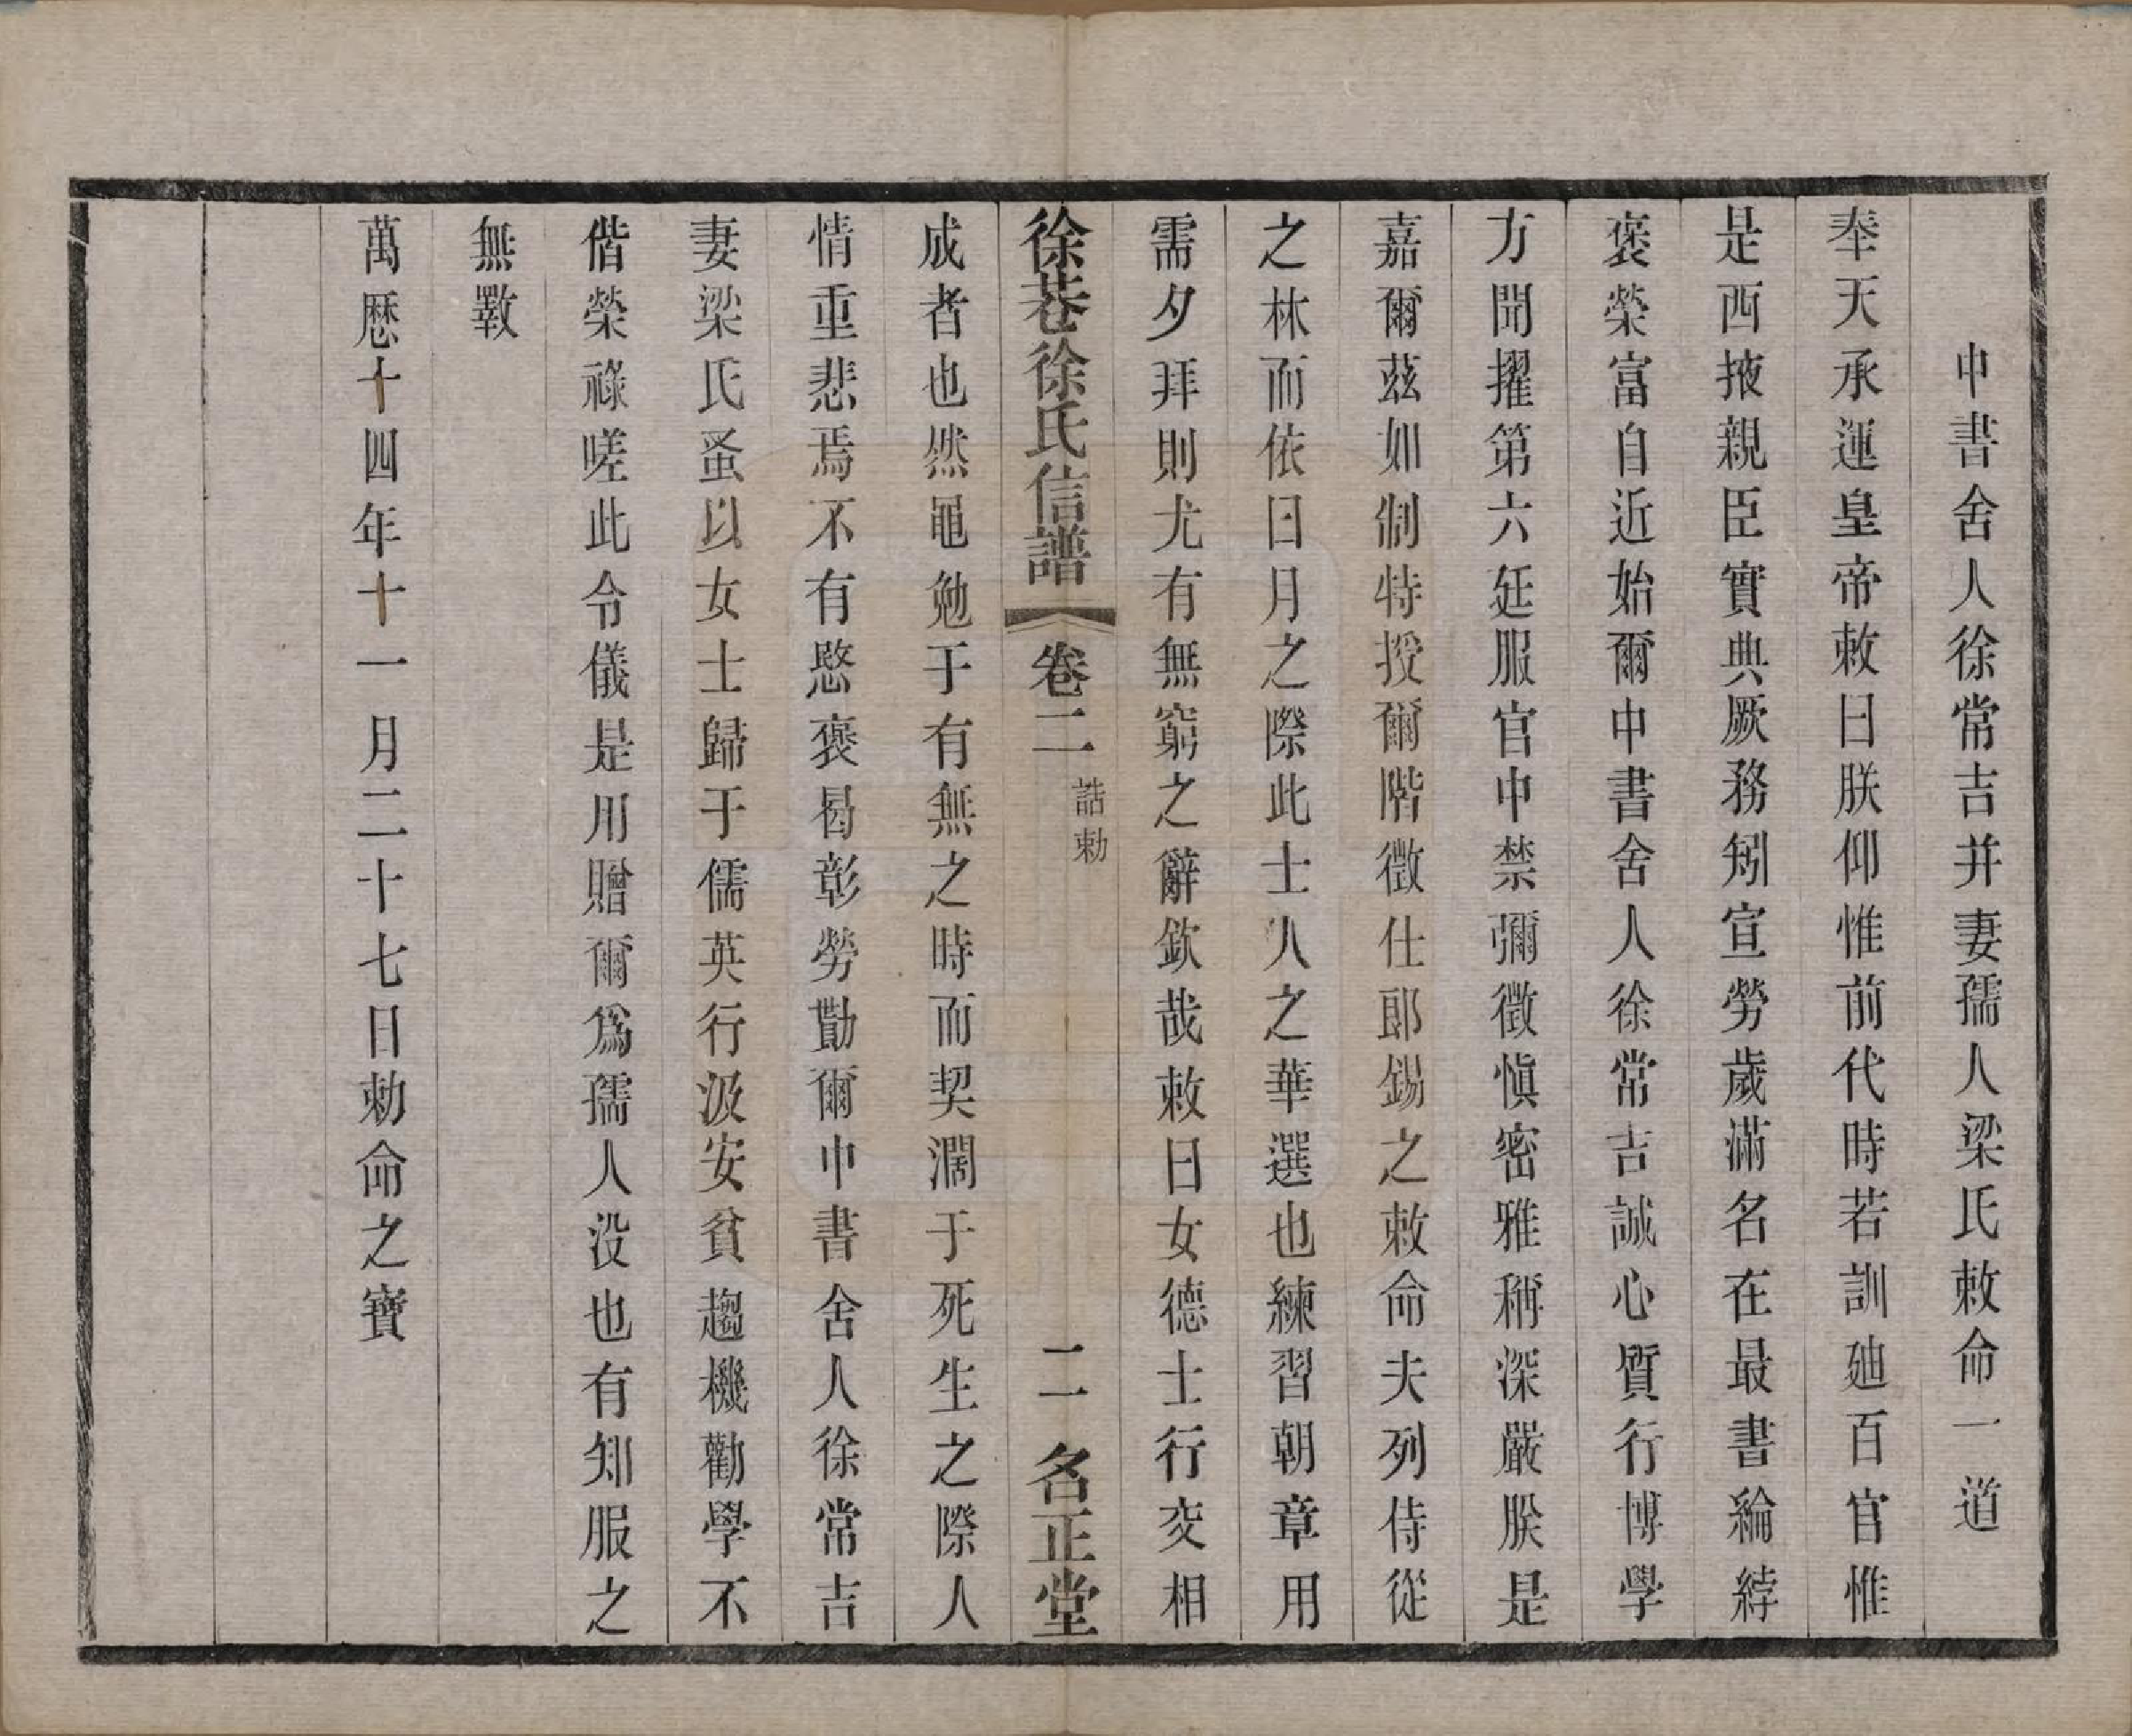 中書舍人徐常吉并妻孺人梁氏敕命一道
奉天承運皇帝敕曰朕仰惟前代時若訓廸百官惟
是西掖親臣實典厥務矧宣勞歲滿名在最書綸綍
褒榮富自近始爾中書舍人徐常吉誠心質行博學
方聞擢第六廷服官中禁彌徵愼密雅稱深嚴朕是
嘉爾茲如制特授爾階徵仕郎錫之敕命夫列侍從
之林而依日月之際此士人之華選也練習朝章用
需夕拜則尤有無窮之辭欽哉敕曰女德士行交相
徐巷徐氏信譜 卷二 誥勅 二 名正堂
成者也然黽勉于有無之時而契濶于死生之際人
情重悲焉不有愍褒曷彰勞勩爾中書舍人徐常吉
妻梁氏蚤以女士歸于儒英行汲安貧趨機勸學不
偕榮祿嗟此令儀是用贈爾爲孺人没也有知服之
無斁
萬歷十四年十一月二十七日勅命之寶